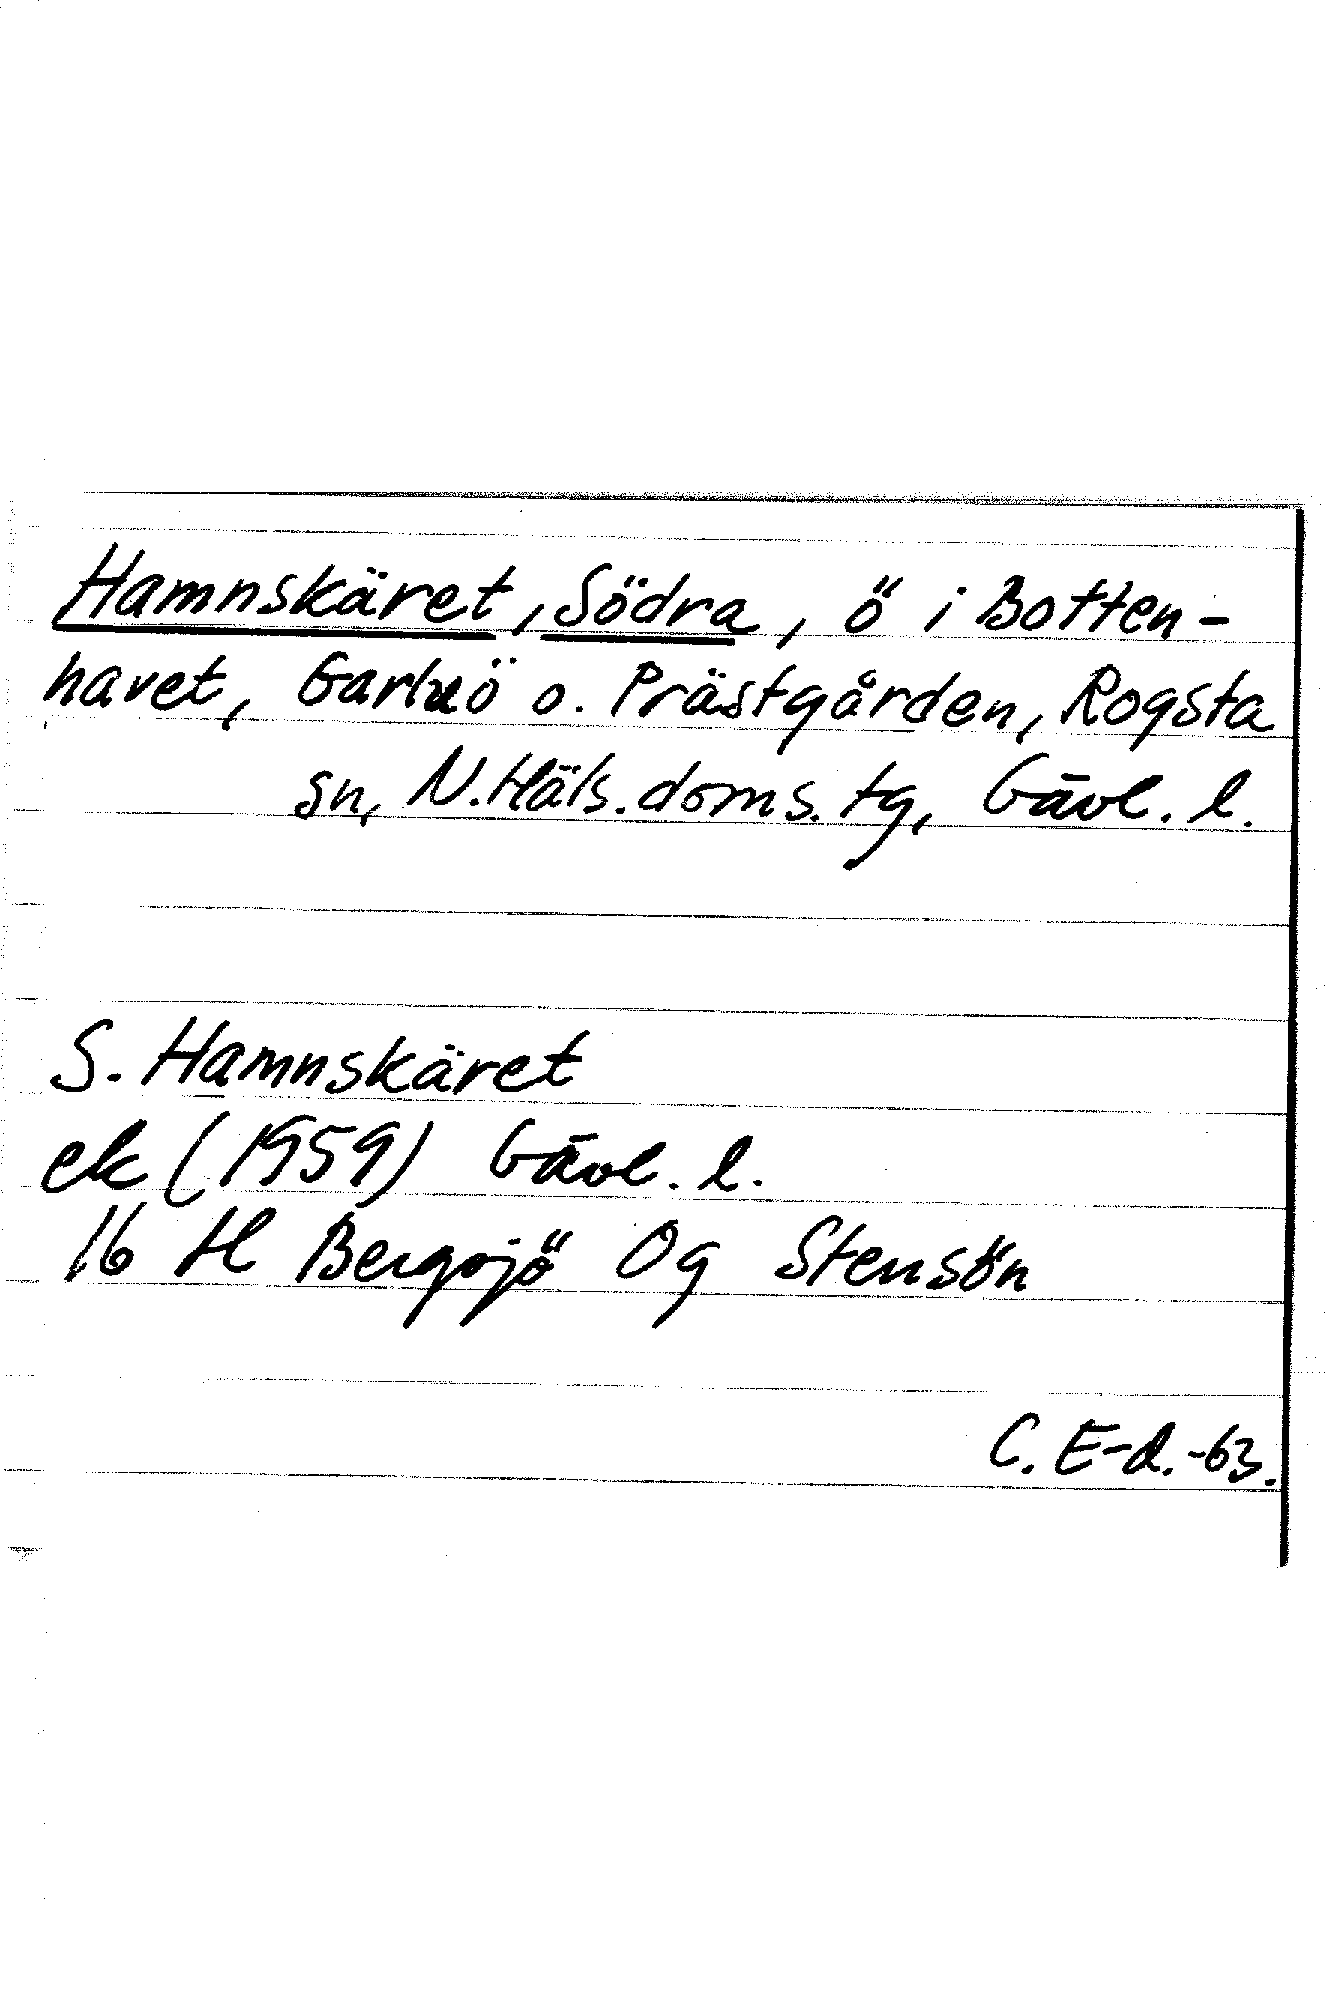 Hamnskäret, Södra, ö i Botten-
havet, o. Prästgården, Rogsta
sn, N. Häls. doms. tg, Gävl. l.
S. Hamnskäret
ek (1959) Gävl. l.
16 H Bergojö Og Stensön
C. E-d. -63.